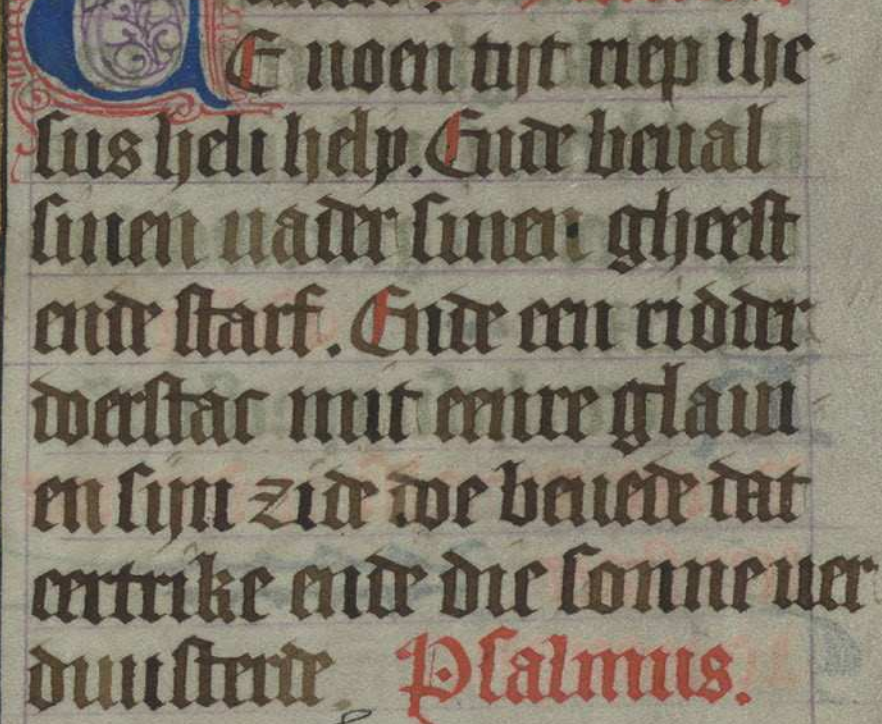 TE noen tijt riep ihe
sus heli help. Ende beual
sinen uader sinen gheest
ende starf. Ende een ridder
doerstac mit eenre glaui
en sijn zide doe beuede dat
eertrike ende die sonne uer
duusterde. Psalmus.